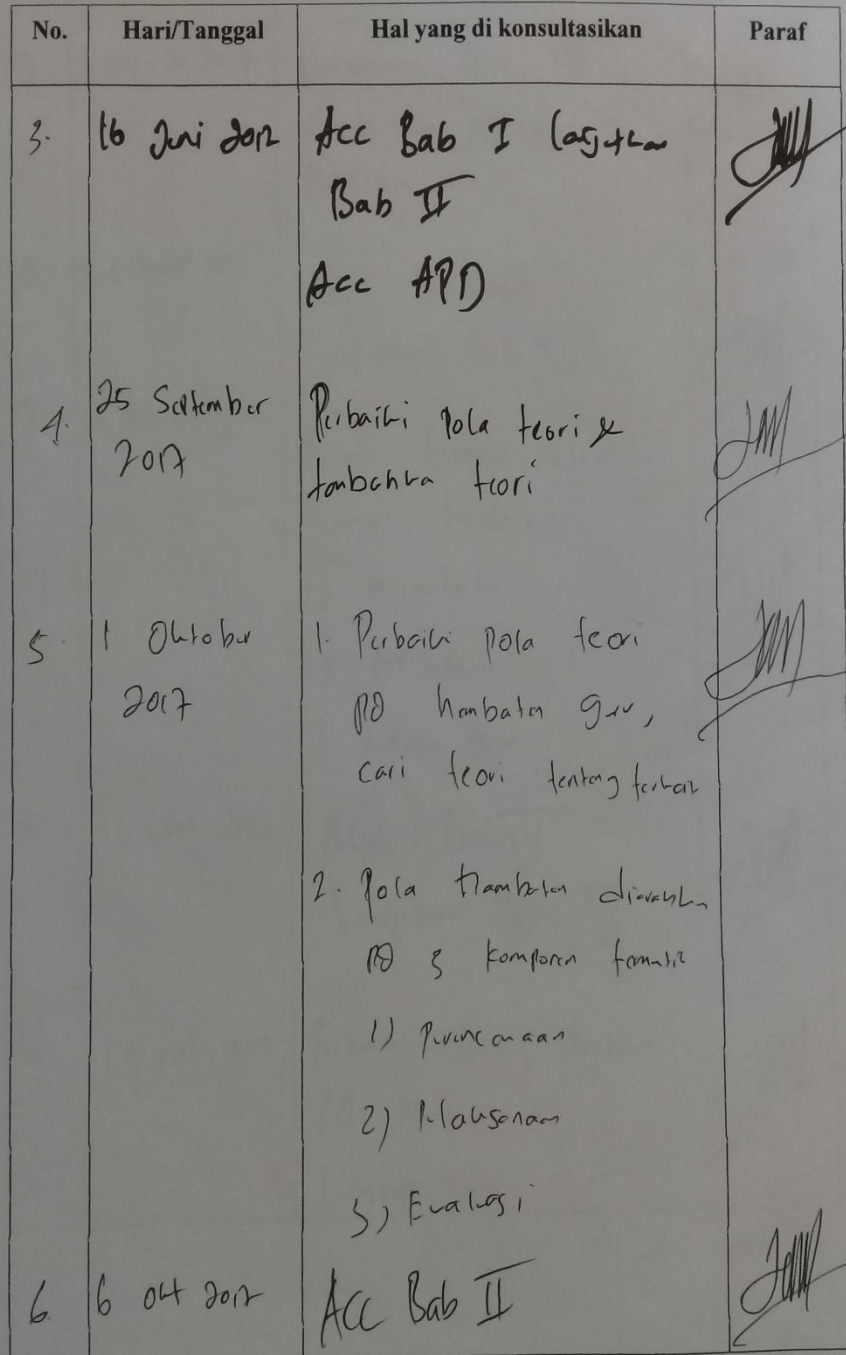 No. Hari/Tanggal Hal yang di konsultasikan Paraf
3. 16 Juni 2017 Acc Bab I lanjutkan
Bab II
Acc APD
4. 25 September Perbaiki pola teori &
2017 tambahkan teori
5. 1 Oktober 1. Perbaiki pola teori
2017 pd hambatan guru,
cari teori tentang terkait
2. Pola hambatan diarahkan
pd 3 komponen
1) Perencanaan
2) Pelaksanaan
3) Evaluasi
6. 6 Okt 2017 Acc Bab II